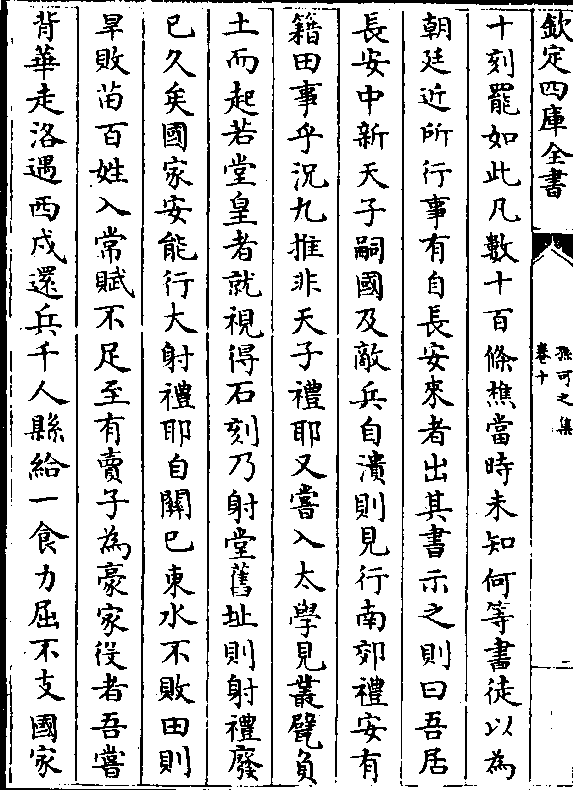 欽定四庫全書
孫可之集
卷十
二
十刻罷如此凡數十百條樵當時未知何等書徒以為
朝廷近所行事有自長安來者出其書示之則曰吾居
長安中新天子嗣國及敵兵自潰則見行南郊禮安有
籍田事乎況九推非天子禮耶又嘗入太學見叢甓負
土而起若堂皇者就視得石刻乃射堂舊址則射禮廢
已久矣國家安能行大射禮耶自關已東水不敗田則
旱敗苗百姓入常賦不足至有賣子為豪家役者吾嘗
背華走洛遇西戍還兵千人縣給一食力屈不支國家